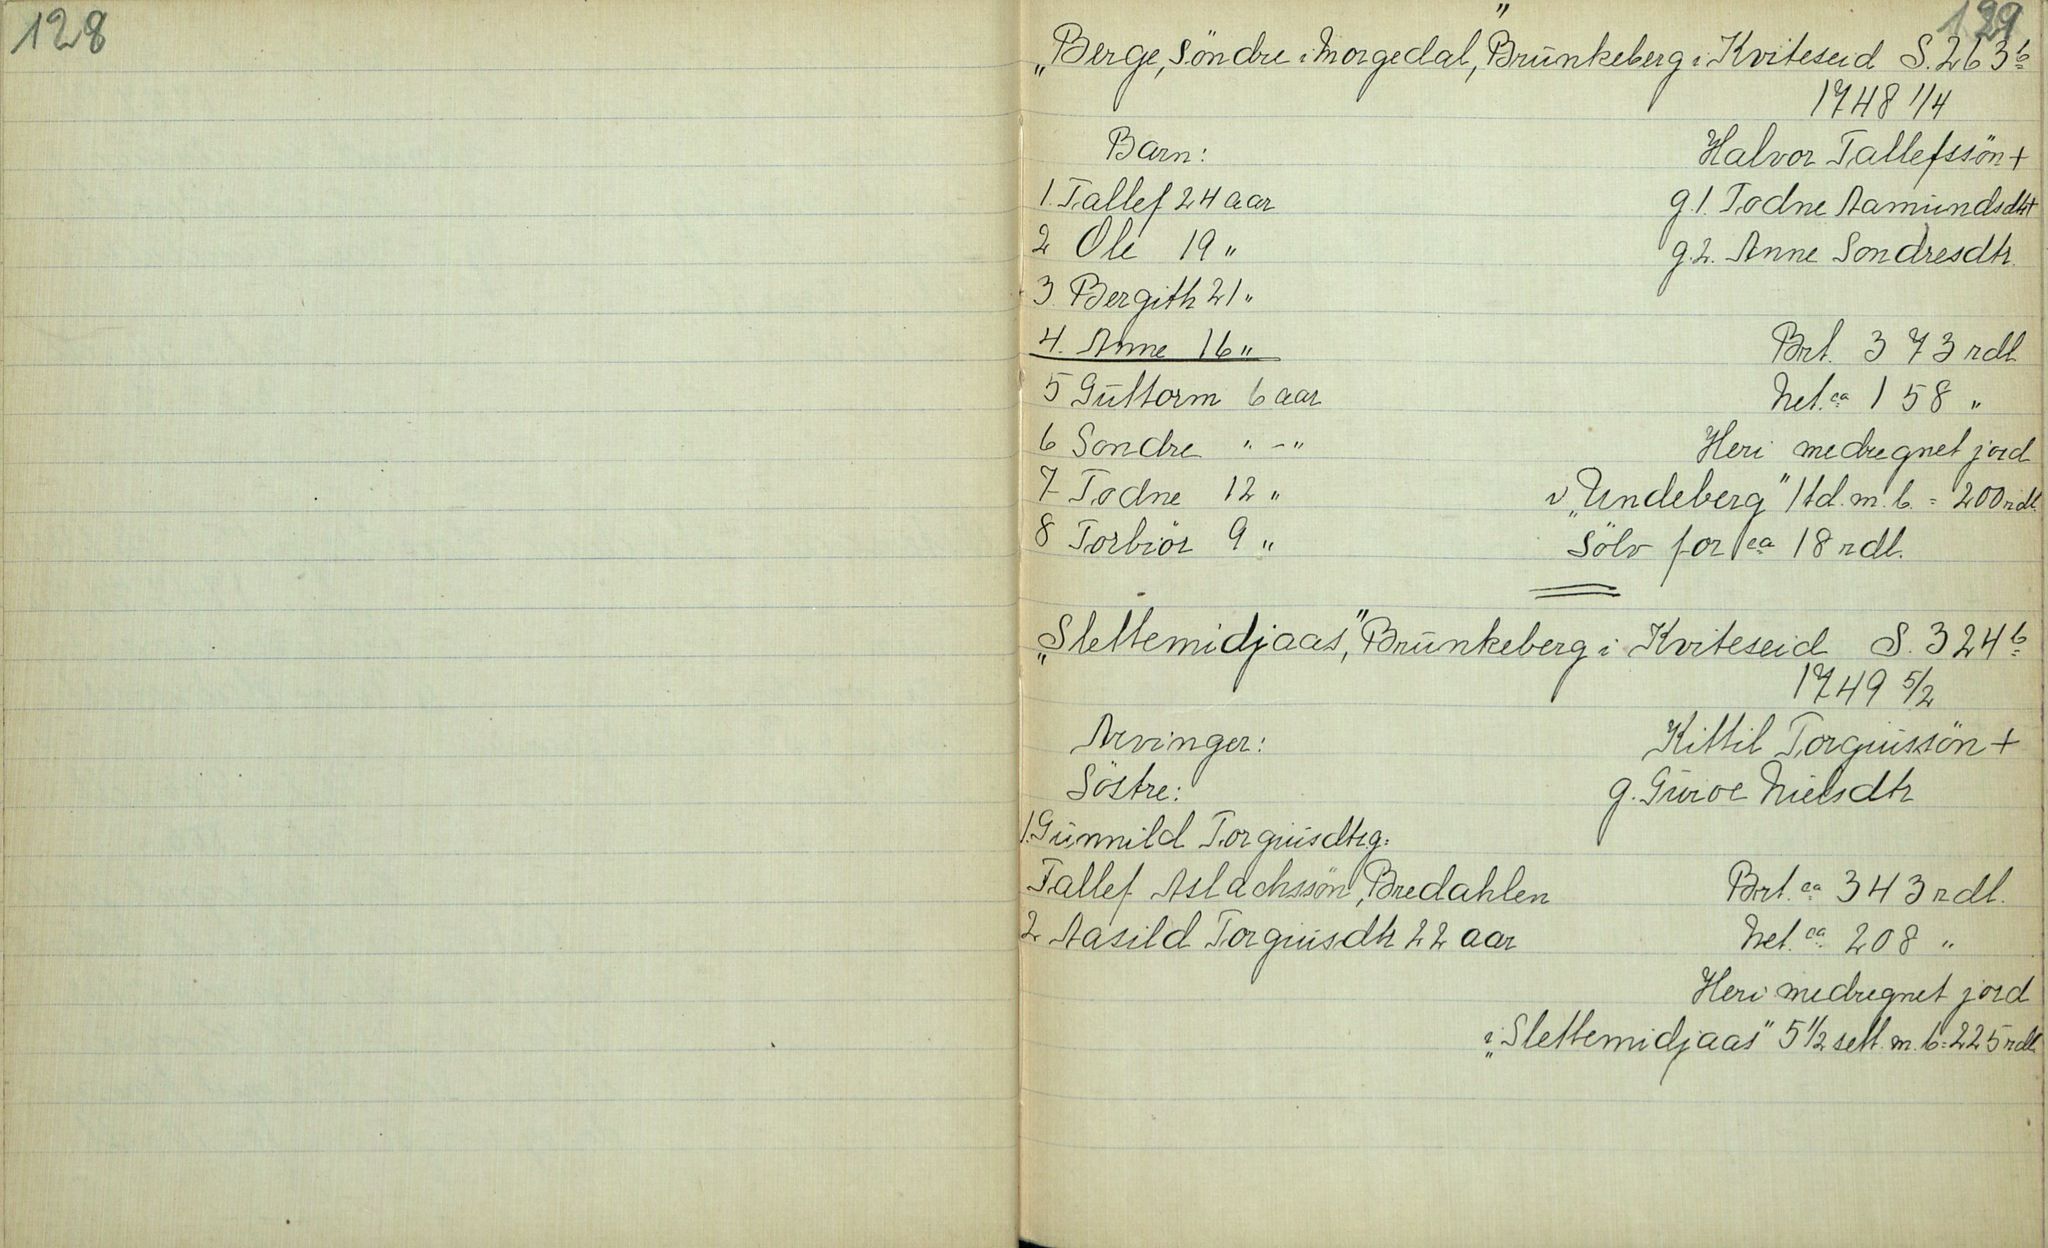 128
129
„Berge, Söndre i Morgedal,” Brūnkeberg i Kviteseid S. 263b
1748 1/4
Barn:
Halvor Tallefssön +
1. Tallef 24 aar
g.1. Todne Aamūndsdtr +
2 Ole 19 "
g.2. Anne Sondresdtr.
3 Bergith 21 "
4. Anne 16 "
Brt. 373 rdl
5 Gūttorm 6 aar
Net. ca 158 "
6 Sondre " - "
Heri medregnet jord
7 Todne 12 "
i „Undeberg” 1 td. m. b. = 200 rdl.
8 Torbiör 9 "
Sölv for ca 18 rdl.
„Slettemidjaas,” Brūnkeberg i Kviteseid S. 324b
1749 5/2
Arvinger:
Kittil Torgiūssön +
Söstre:
g. Gūroe Nielsdtr
1. Gūnnild Torgiūsdtr g:
Tallef Aslachssön, Bredahlen
Brt. ca 343 rdl.
2 Aasild Torgiūsdtr 22 aar
Net. ca 208 "
Heri medregnet jord
i „Slettemidjaas” 5 1/2 sett. m. b = 225 rdl.